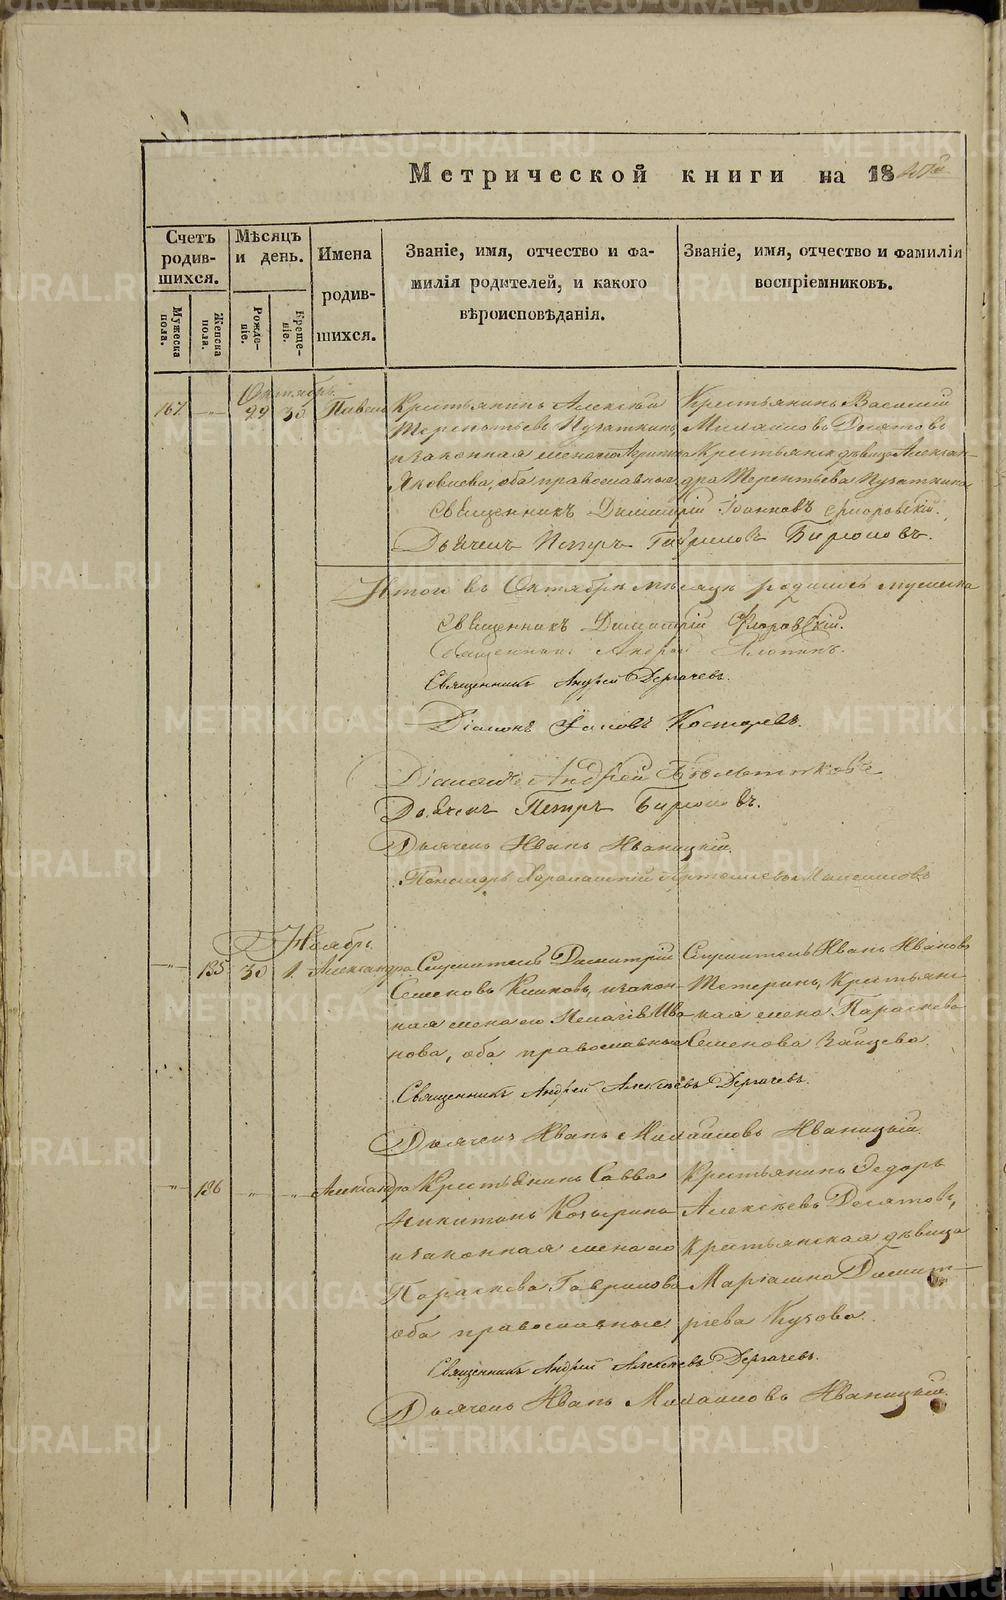 Метрической книги на 1847й
Счетъ родив-шихся.
Мѣсяцъ и день.
Имена родив-шихся.
Званіе, имя, отчество и фа-
милія родителей, и какого
вѣроисповѣданія.
Званіе, имя, отчество и фамилія
воспріемниковъ.
Мужеска пола.
Женска пола.
Рожде-ніе.
Креще-ніе.
Октябрь
167 29 30 Павелъ Крестьянинъ Алексѣй
Терентьевъ Пузаткинъ,
и законная жена его
Яковлева, оба православные
Крестьянинъ Василий
Михаиловъ Десятовъ
Крестьянск. дѣвица Алексан-
дра Терентьева Пузаткина
Священникъ Димитрій Іоанновъ Флоровскій.
Дьячекъ Петръ Гавриловъ Бирюковъ.
Итого въ Октябрѣ мѣсяцѣ родилось мужеска
Священникъ Димитрій Флоровскій.
Священникъ Андрей
Священникъ Андрей Дергачевъ.
Діаконъ Іаковъ Костаревъ.
Діаконъ Андрей
Дьячекъ Петръ Бирюковъ.
Дьячекъ Иванъ Иваницкій.
Пономарь
Ноябрь
135 30 1. Александра Служитель Димитрій
Семеновъ Климовъ, и закон-
ная жена его Пелагія Ива-
нова, оба православные
Служитель Иванъ Ивановъ
Тетеринъ, Крестьянс-
кая жена Параскева
Семенова Зайцева.
Священникъ Андрей Алексѣевъ Дергачевъ.
Дьячекъ Иванъ Михаиловъ Иваницкій.
136 Александра Крестьянинъ Савва
Никитинъ Козыринъ
и законная жена его
Параскева Гаврилова
оба православные
Крестьянинъ Федоръ
Алексѣевъ Десятовъ,
Крестьянская дѣвица
Маріамна Димит-
ріева Кузова.
Священникъ Андрей Алексѣевъ Дергачевъ.
Дьячекъ Иванъ Михаиловъ Иваницкій.
METRIKI.GASO-URAL.RU